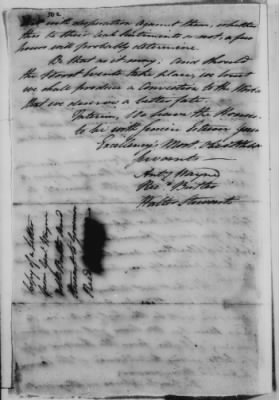 502
with desperation against them, whether
this to their real Sentiments or not, a few
hours will probably determine.
Be that as it may. And should
the Worst Events take place, we trust
we shall produce a Conviction to the World
that we deserve a better fate.
Interim, We have the Honour
to be with sincere Esteem Your
Excellency's Most Obed.t Hble
Servants
Ant.y Wayne
Rich.d Butler
Walter Stewart
Copy of a Letter
from Gen.l Wayne
Col.o Butler and
Stewart